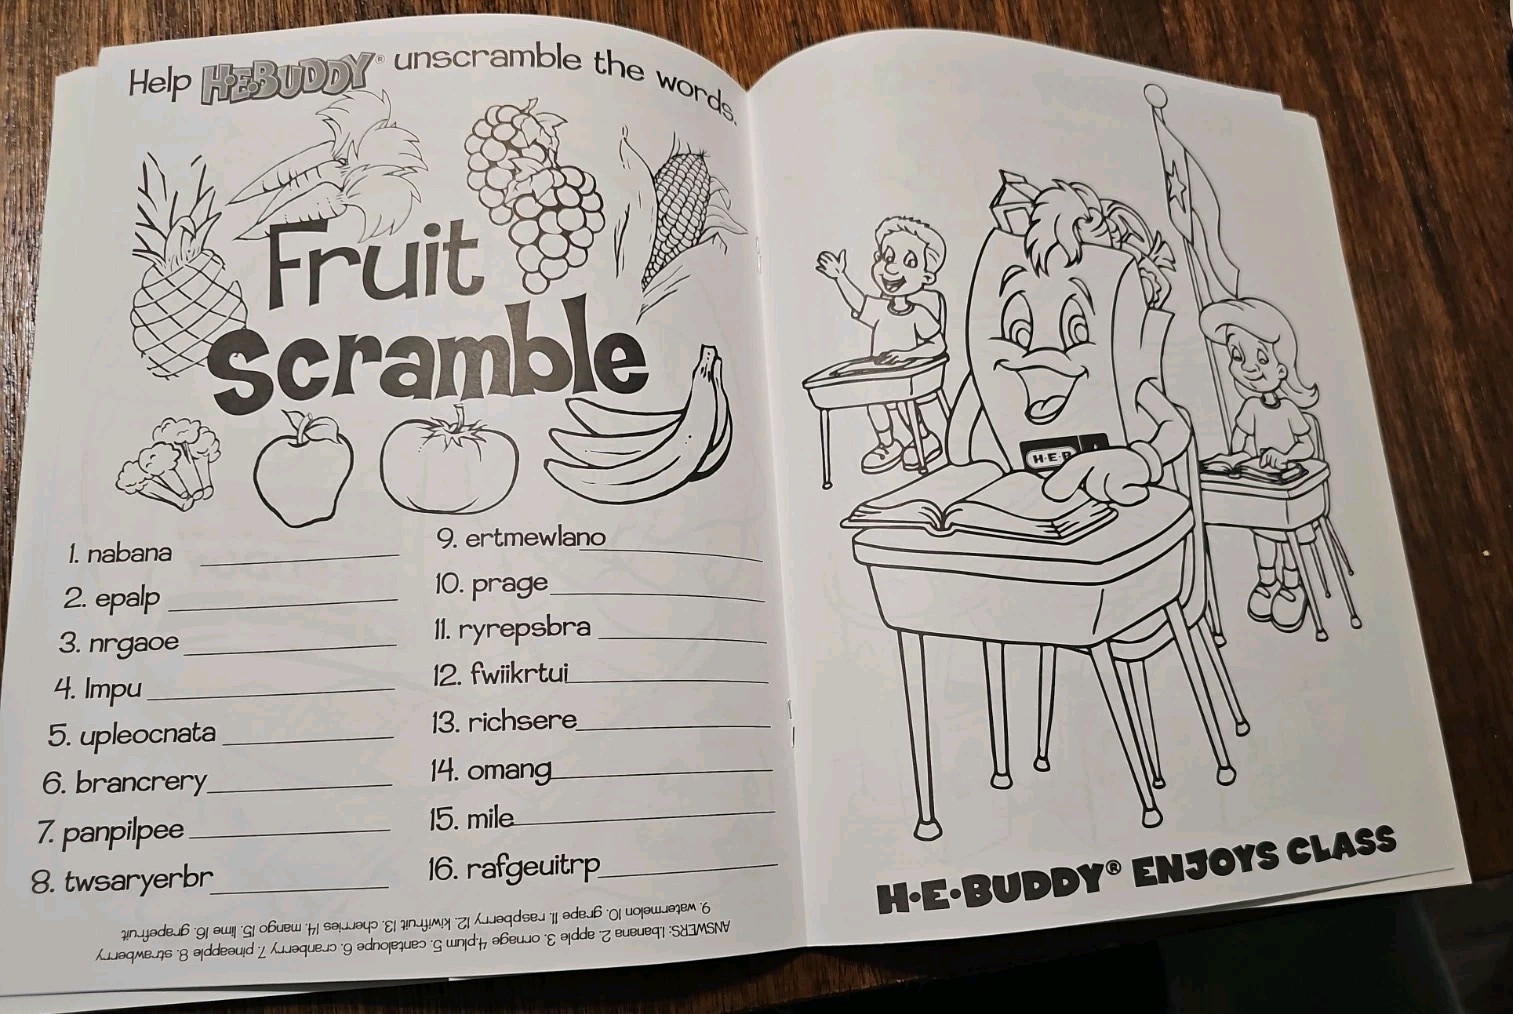 Help H·E·BUDDY® unscramble the words.
Fruit
Scramble
1. nabana
2. epalp
3. nrgaoe
4. lmpu
5. upleocnata
6. brancrery
7. panpilpee
8. twsaryerbr
9. ertmewlano
10. prage
11. ryrepsbra
12. fwiikrtui
13. richsere
14. omang
15. mile
16. rafgeuitrp
ANSWERS: 1.banana 2. apple 3. ornage 4.plum 5. cantaloupe 6. cranberry 7. pineapple 8. strawberry
9. watermelon 10. grape 11. raspberry 12. kiwifruit 13. cherries 14. mango 15. lime 16. grapefruit
H·E·B
H·E·BUDDY® ENJOYS CLASS